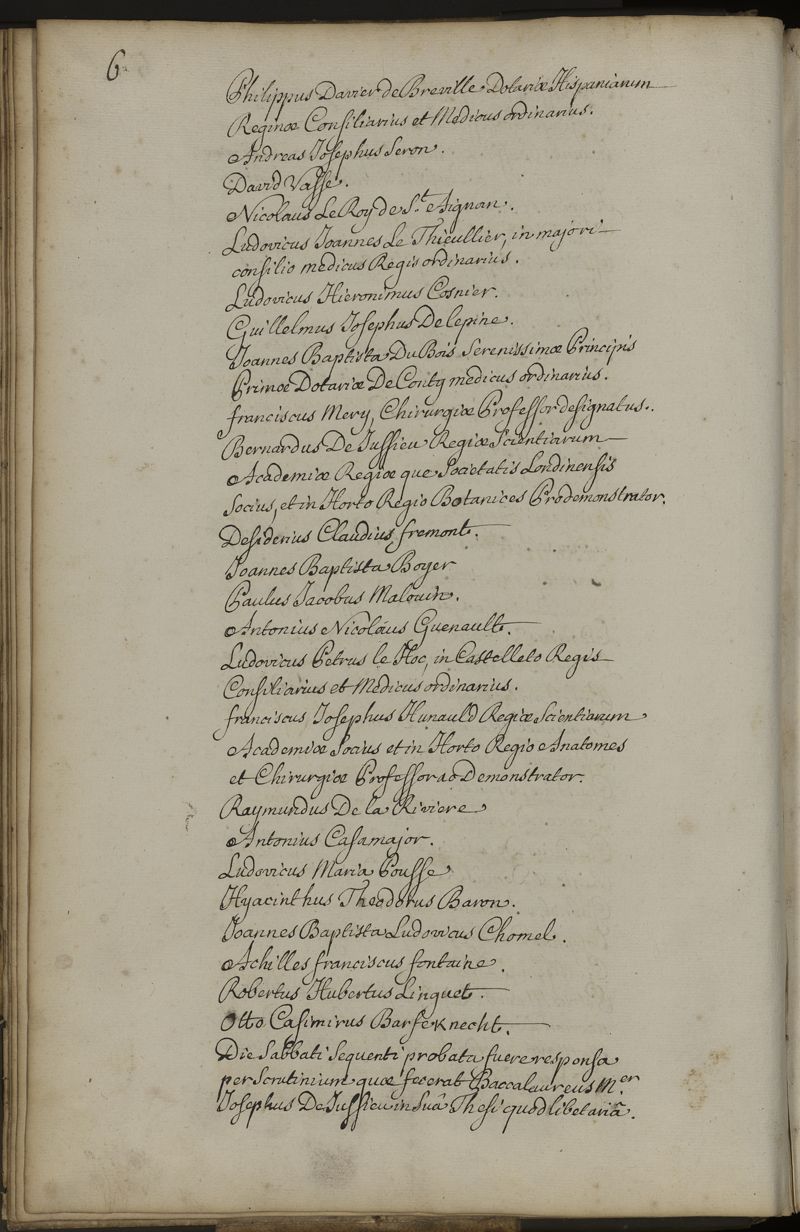 6
Philippus Davier de Breville Dotariæ Hispaniarum
Reginæ Consiliarius et Medicus ordinarius.
Andreas Josephus Seron.
David Vasse.
Nicolaus Le Roy de St. Aignan.
Ludovicus Joannes Le Thieullier, in majori
consilio medicus Regis ordinarius.
Ludovicus Hieronimus Cosnier.
Guillelmus Josephus De lepine.
Joannes Baptista Du Bois Serenissimæ Principis
Primæ Dotariæ De Conty medicus ordinarius.
franciscus Mery, Chirurgiæ Professor designatus.
Bernardus De Jussieu Regiæ Scientiarum
Academiæ Regiæ que Societatis Londinensis
Socius, et in Horto Regio Botanices Prodemonstrator.
Desiderius Claudius fremont.
Joannes Baptista Boyer
Paulus Jacobus Malouin.
Antonius Nicolaus Guenault.
Ludovicus Petrus le Hoc, in Castelleto Regis
Consiliarius et Medicus ordinarius.
franciscus Josephus Hunauld Regiæ Scientiarum
Academiæ Socius et in Horto Regio Anatomes
et Chirurgiæ Professor ac Demonstrator.
Raymundus De la Riviere
Antonius Casamajor.
Ludovicus Maria Pousse
Hyacinthus Theodorus Baron.
Joannes Baptista Ludovicus Chomel.
Achilles franciscus fontaine.
Robertus Hubertus Linguet.
Otto Casimirus Barfeknecht.
Die Sabbati Sequenti probata fuere responsa
per Scrutinium quæ fecerat Baccalaureus Mer.
Josephus De Jussieu in Suâ Thesi quodlibetariâ.